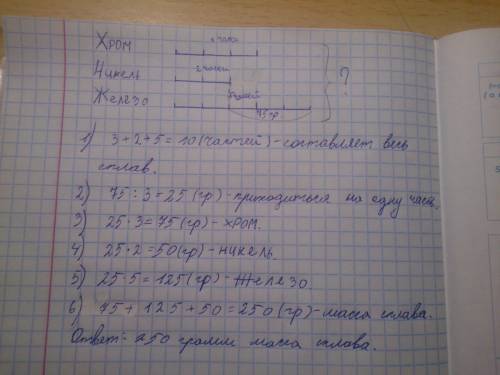 Хром
2 части
Никель
5 частей
Железо
75 гр
?
1) 3+2+5=10 (частей) - составляет весь
сплав.
2) 75:3=25 (гр) - приходиться на одну часть.
3) 25·3=75 (гр) - хром.
4) 25·2=50 (гр) - никель.
5) 25·5=125 (гр) - Железо.
6) 75+125+50=250 (гр) - масса сплава.
Ответ - 250 грамм масса сплава.